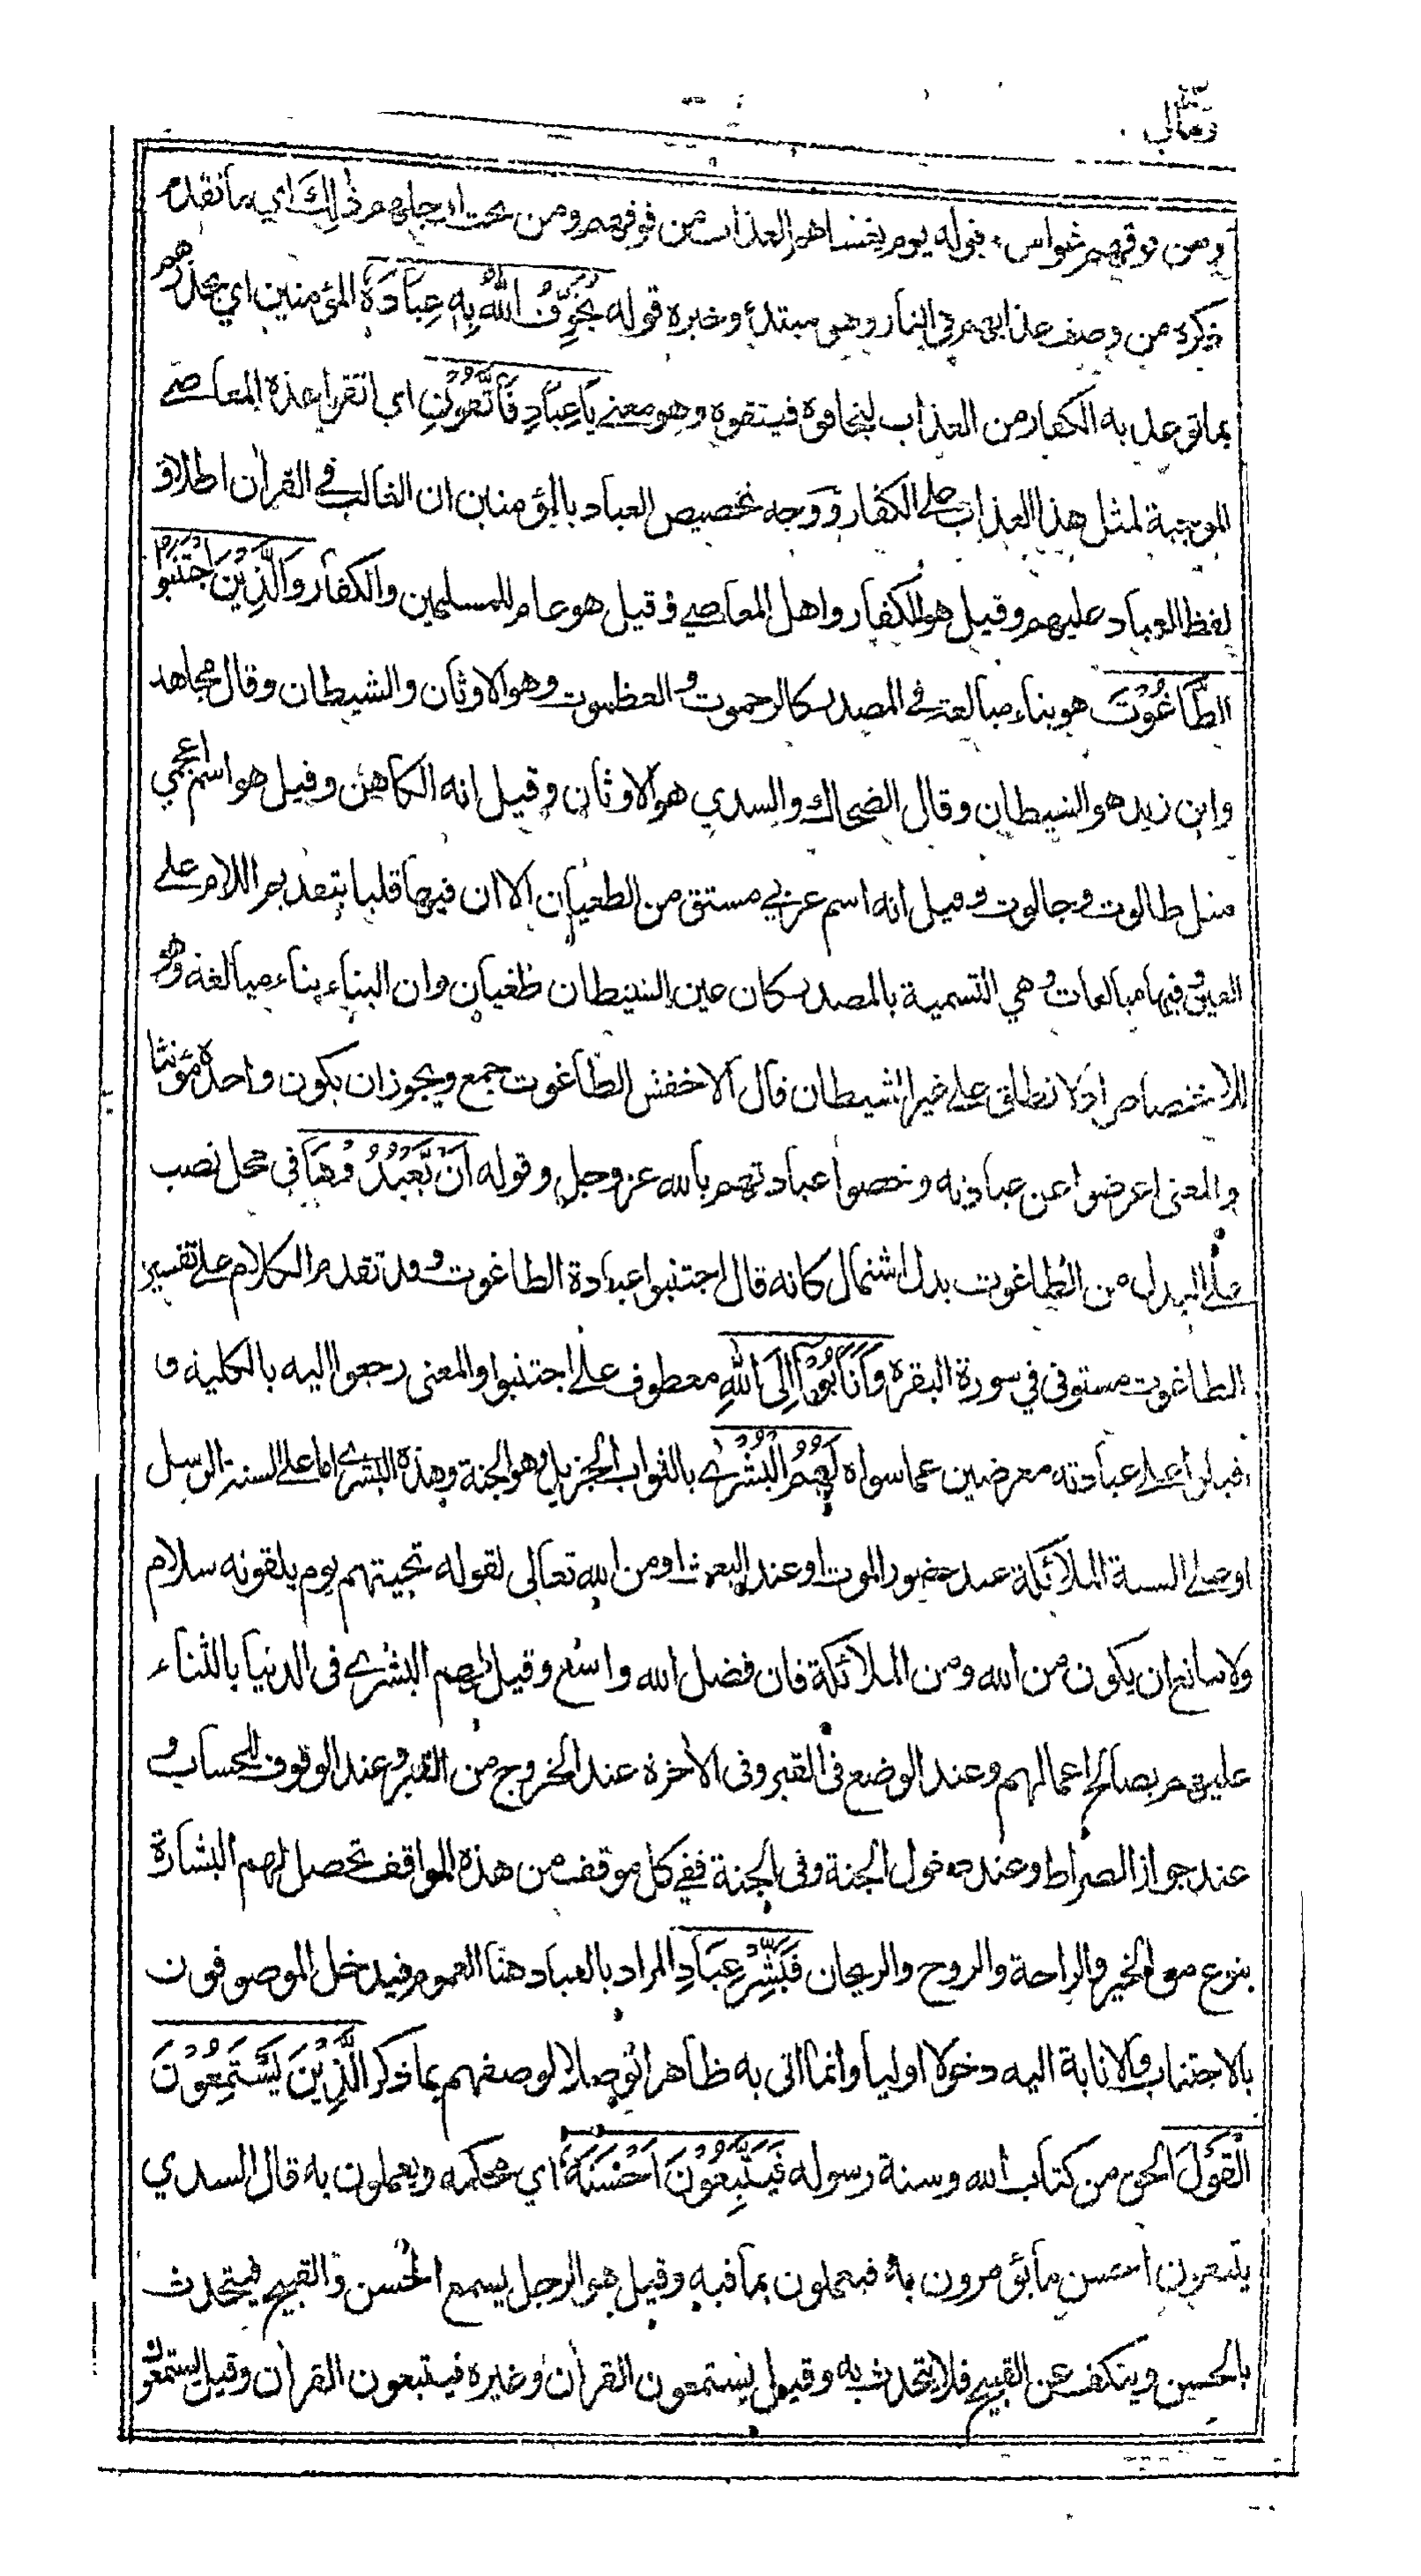 تعالى
ومن فوقهم غواش وقوله يوم يغشاهم العذاب من فوقهم ومن تحت ارجلهم ذٰلِكَ اي ما تقدم
ذكره من وصف عذابهم في النار وهو مبتدأ وخبره قوله يُخَوِّفُ اللّٰهُ بِهٖ عِبَادَهٗ المؤمنين اي يحذرهم
بما توعد به الكفار من العذاب ليخافوه فيتقوه وهو معنى يَا عِبَادِ فَاتَّقُوْنِ اي اتقوا هذه المعاصي
الموجبة لمثل هذا العذاب على الكفار ووجه تخصيص العباد بالمؤمنين ان الغالب في القرآن اطلاق
لفظ العباد عليهم وقيل هو للكفار واهل المعاصي وقيل هو عام للمسلمين والكفار وَالَّذِيْنَ اجْتَنَبُوا
الطَّاغُوْتَ هو بناء مبالغة في المصدر كالرحموت والعظموت وهو الاوثان والشيطان وقال مجاهد
وابن زيد هو الشيطان وقال الضحاك والسدي هو الاوثان وقيل انه الكاهن وقيل هو اسم اعجمي
مثل طالوت وجالوت وقيل انه اسم عربي مشتق من الطغيان الا ان فيها قلبا بتقديم اللام على
العين وفيها مبالغات وهي التسمية بالمصدر كان عين الشيطان طغيان وان البناء بناء مبالغة وهو
للاختصاص اذ لا تطلق على غير الشيطان قال الاخفش الطاغوت جمع ويجوز ان يكون واحده مؤنثا
والمعنى اعرضوا عن عبادته وخصوا عبادتهم بالله عز وجل وقوله اَنْ يَّعْبُدُوْهَا في محل نصب
على البدل من الطاغوت بدل اشتمال كانه قال اجتنبوا عبادة الطاغوت وقد تقدم الكلام على تفسير
الطاغوت مستوفى في سورة البقرة وَاَنَابُوْٓا اِلَى اللّٰهِ معطوف على اجتنبوا والمعنى رجعوا اليه بالكلية و
اقبلوا على عبادته معرضين عما سواه لَهُمُ الْبُشْرٰى بالثواب الجزيل وهو الجنة وهذه البشرى اما على السنة الرسل
او على السنة الملائكة عند حضور الموت او عند البعث او من الله تعالى لقوله تحيتهم يوم يلقونه سلام
ولا مانع ان يكون من الله ومن الملائكة فان فضل الله واسع وقيل لهم البشرى في الدنيا بالثناء
عليهم بصالح اعمالهم وعند الوضع في القبر وفي الآخرة عند الخروج من القبر وعند الوقوف للحساب و
عند جواز الصراط وعند دخول الجنة وفي الجنة ففي كل موقف من هذه المواقف تحصل لهم البشارة
بنوع من الخير والراحة والروح والريحان فَبَشِّرْ عِبَادِ المراد بالعباد هنا العموم فيدخل الموصوفون
بالاجتناب والانابة اليه دخولا اوليا وانما اتى به ظاهرا توصلا لوصفهم بما ذكر الَّذِيْنَ يَسْتَمِعُوْنَ
الْقَوْلَ الحق من كتاب الله وسنة رسوله فَيَتَّبِعُوْنَ اَحْسَنَهٗ اي محكمه ويعملون به قال السدي
يتبعون احسن ما يؤمرون به فيعملون بما فيه وقيل هو الرجل يسمع الحسن والقبيح فيتحدث
بالحسن وينكف عن القبيح فلا يتحدث به وقيل يستمعون القرآن وغيره فيتبعون القرآن وقيل يستمعون